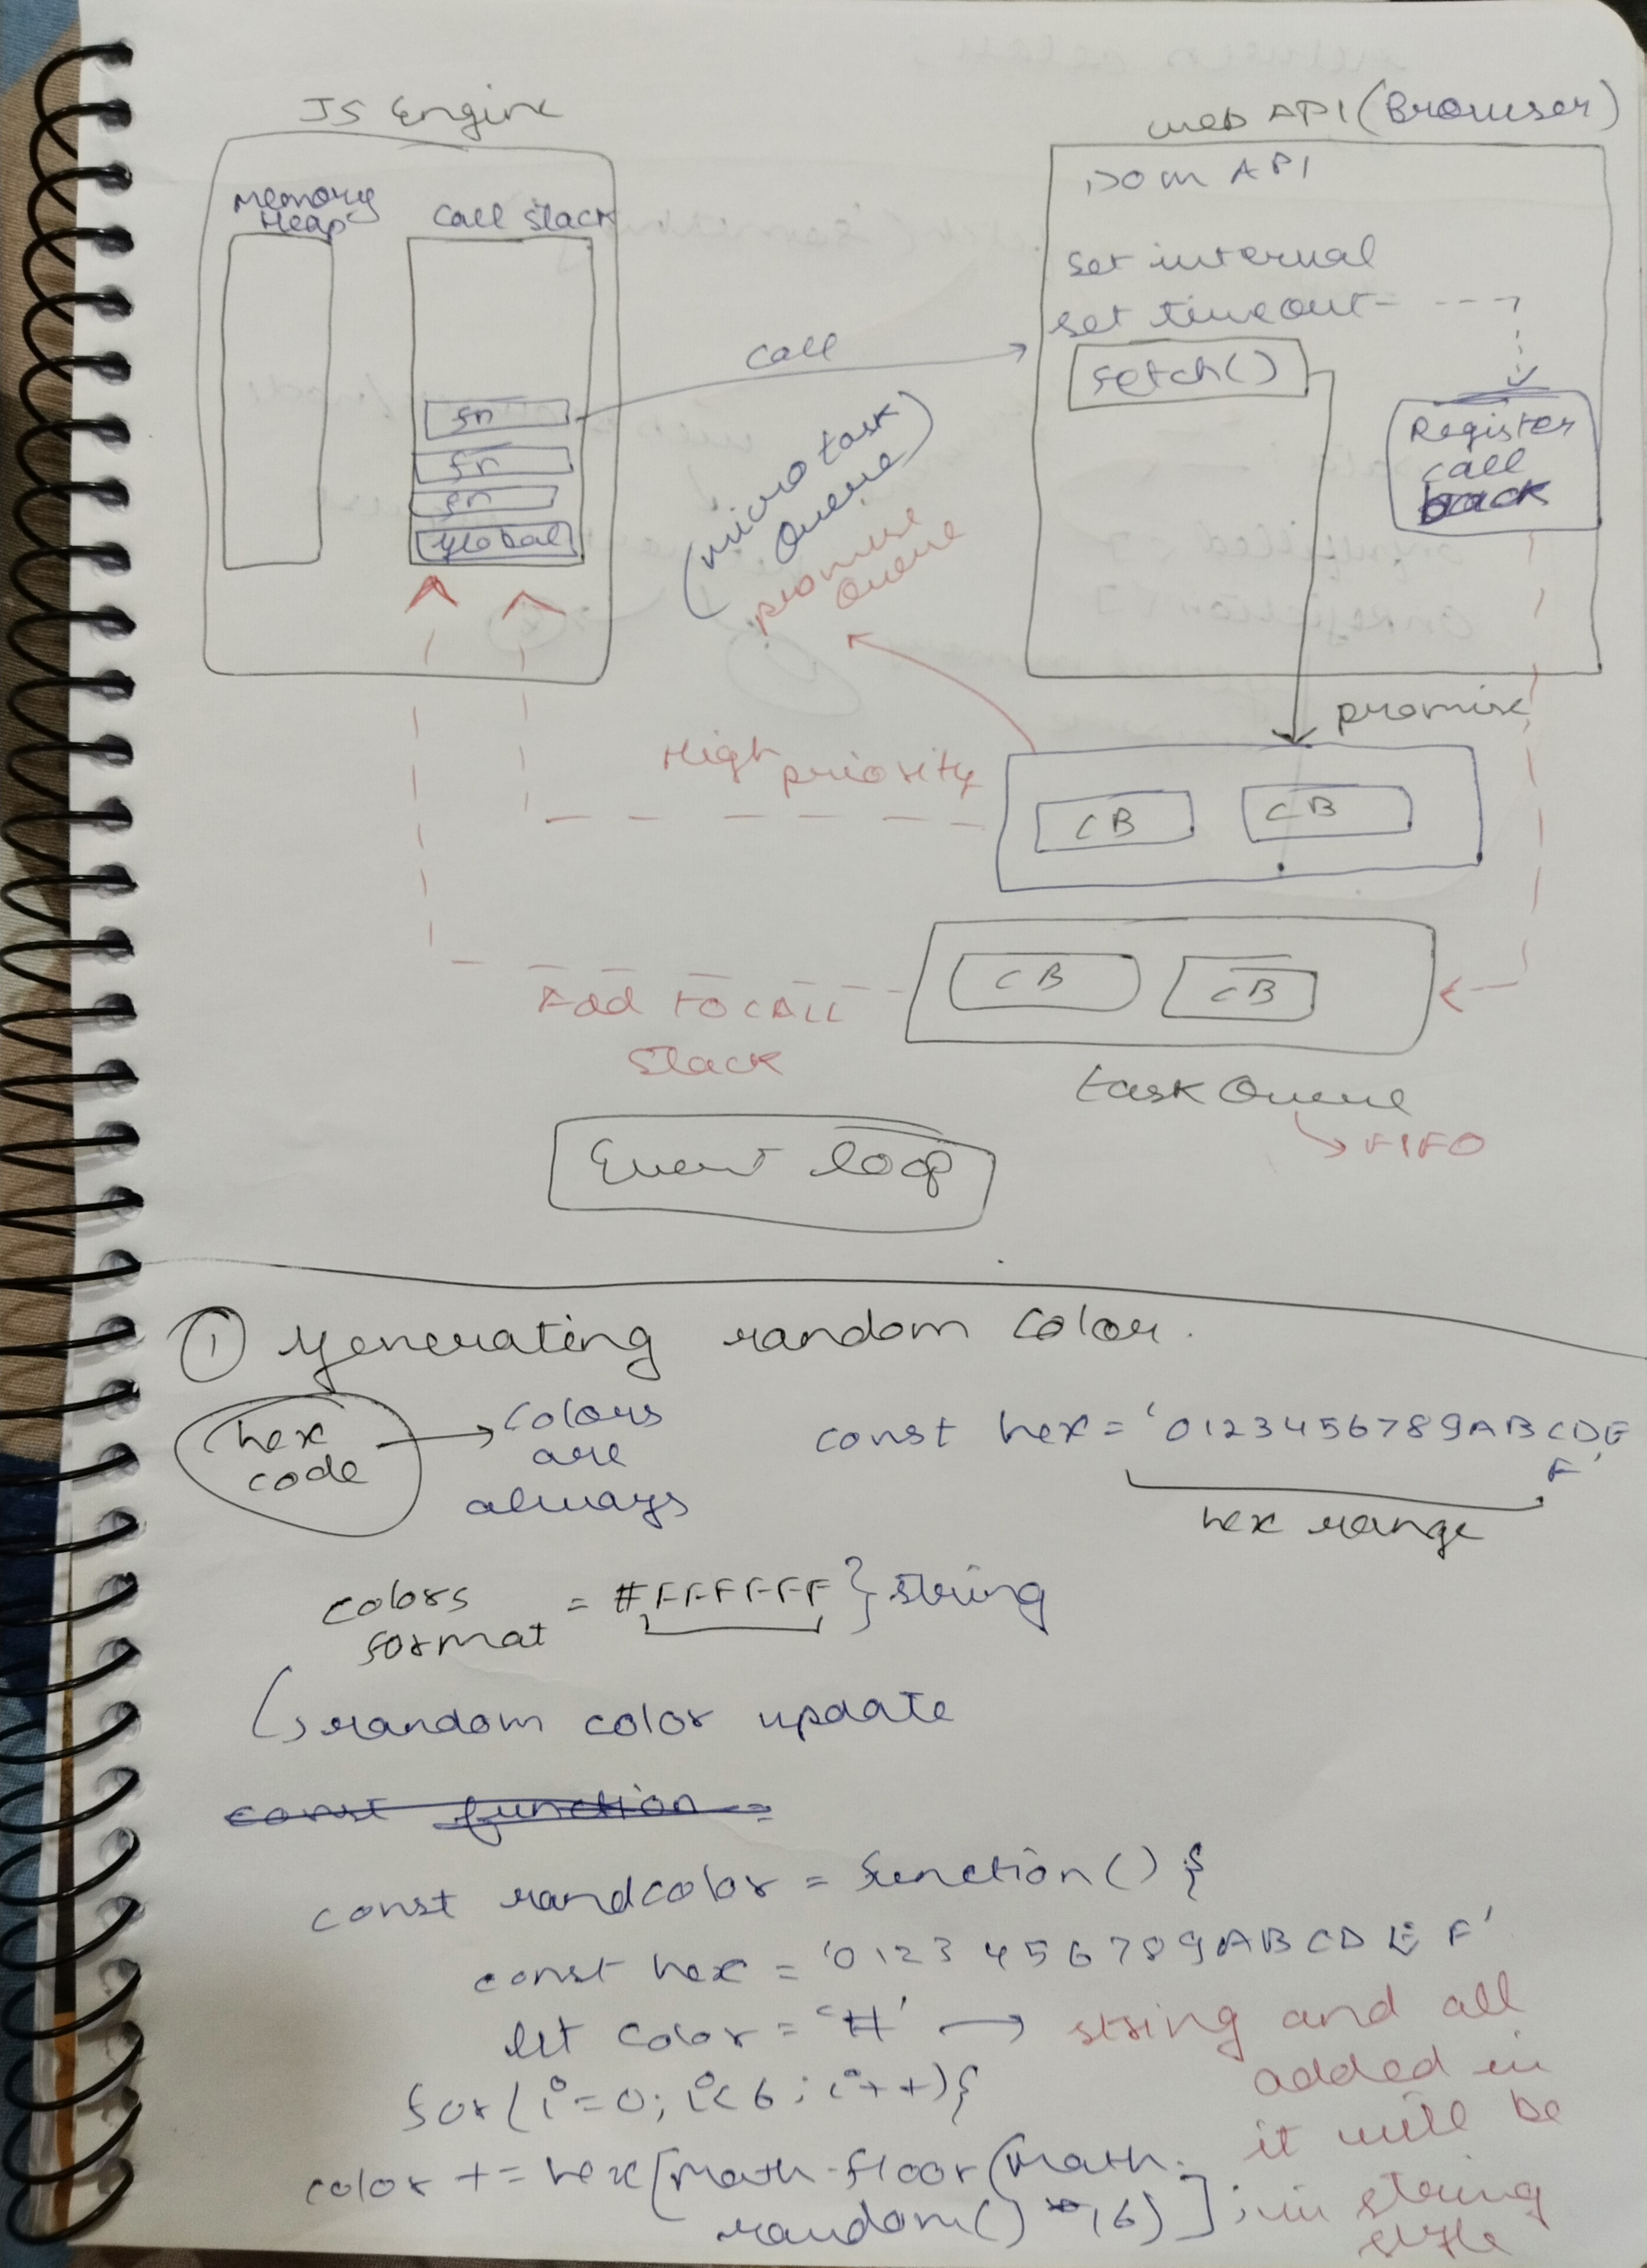 JS Engine
Memory
Heap
Call Stack
fn
fn
fn
global
call
web API (Browser)
DOM API
set interval
set timeout
fetch()
Register
call
back
(micro task
Queue)
promise
Queue
promise
High priority
CB
CB
CB
CB
Add to CALL
Stack
task Queue
FIFO
Event loop
1 generating random color.
hex
code
colors
are
always
const hex = '0123456789ABCDE
F'
hex range
colors
format
= #FFFFFF } string
random color update
const function =
const randcolor = function() {
const hex = '0123456789ABCDEF'
let color = '#' → string and all
added in
it will be
in string
for(i=0; i<6; i++){
color += hex[math.floor(math.
random() *16)];